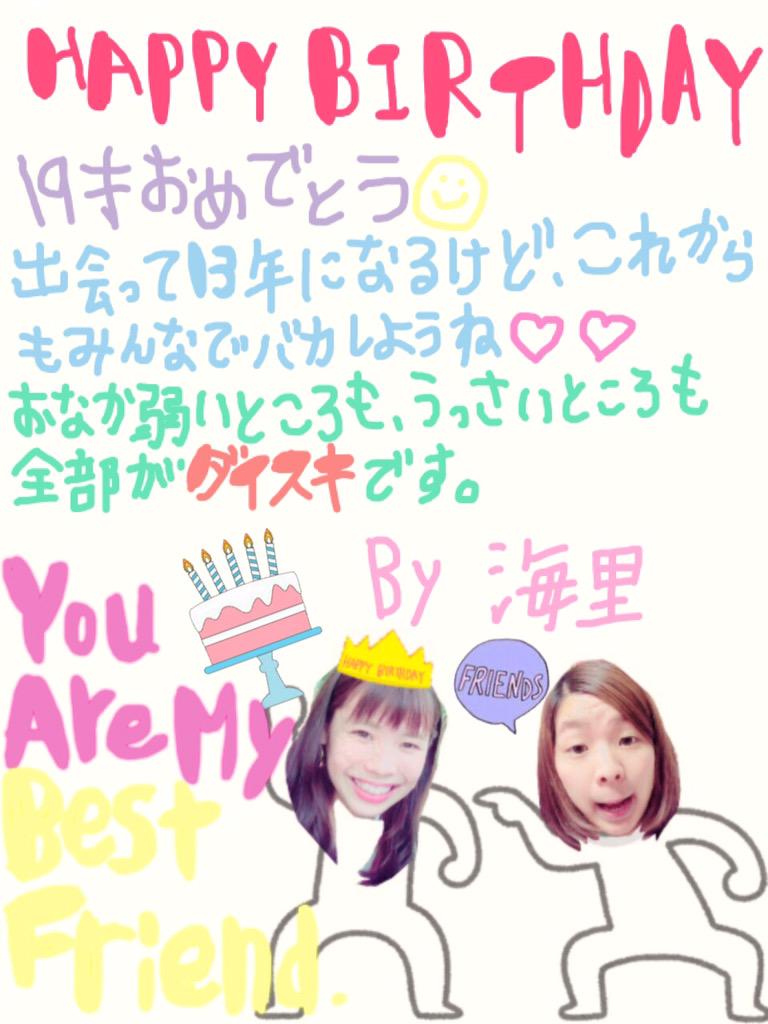 HAPPY BIRTHDAY
19才おめでとう
出会って13年になるけど、これから
もみんなでバカしようね♡♡
おなか弱いところも、うっさいところも
全部がダイスキです。
By 海里
HAPPY BIRTHDAY
FRIENDS
You
Are My
Best
Friend.